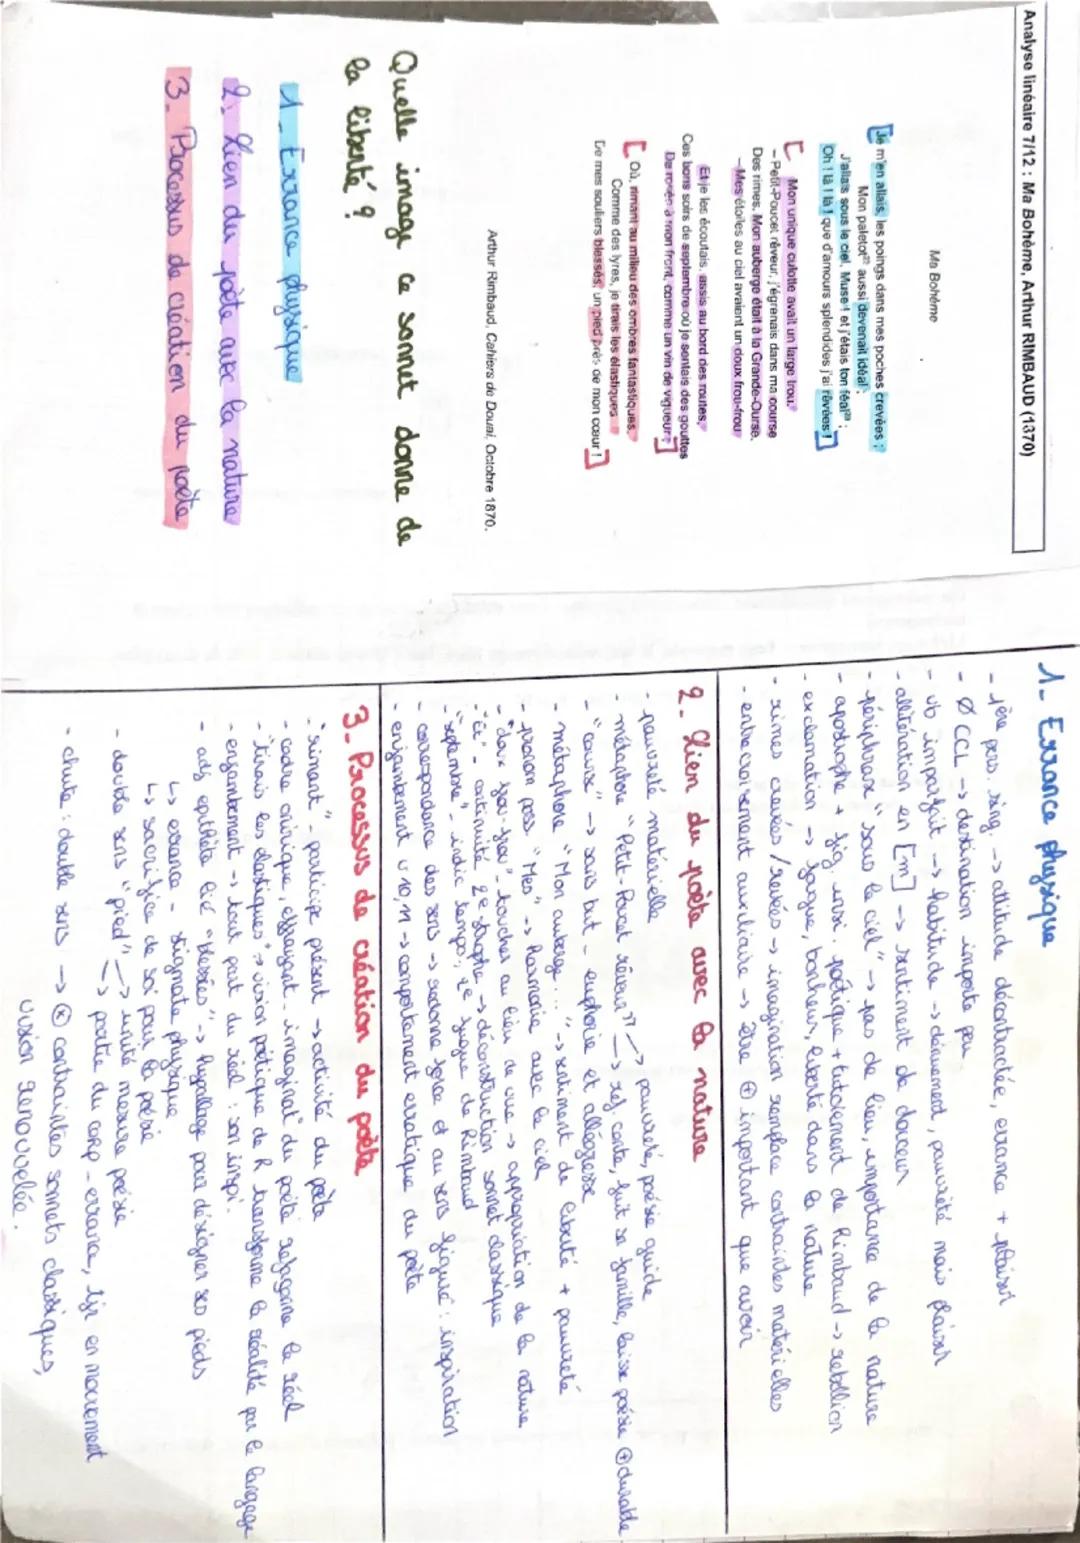 Analyse linéaire 7/12 : Ma Bohème, Arthur RIMBAUD (1870)
Ma Bohème
Je m'en allais, les poings dans mes poches crevées ;
Mon paletot aussi devenait idéal ;
J'allais sous le ciel, Muse ! et j'étais ton féal ;
Oh ! là ! là ! que d'amours splendides j'ai rêvées !
Mon unique culotte avait un large trou.
– Petit-Poucet rêveur, j'égrenais dans ma course
Des rimes. Mon auberge était à la Grande-Ourse.
– Mes étoiles au ciel avaient un doux frou-frou
Et je les écoutais, assis au bord des routes,
Ces bons soirs de septembre où je sentais des gouttes
De rosée à mon front, comme un vin de vigueur ;
Où, rimant au milieu des ombres fantastiques,
Comme des lyres, je tirais les élastiques
De mes souliers blessés, un pied près de mon cœur !
Arthur Rimbaud, Cahiers de Douai, Octobre 1870.
Quelle image ce sonnet donne de
la liberté ?
1 - Errance physique
2. Lien du poète avec la nature
3. Processus de création du poète
1 - Errance physique
- 1ère pers. sing. -> attitude décontractée, errance + plaisir
- Ø CCL -> destination importe peu
- vb imparfait -> habitude -> dénuement, pauvreté mais plaisir
- allitération en [m] -> sentiment de douceur
- périphrase "sous le ciel" -> pas de lieu, importance de la nature
- apostrophe + fig. inspi. poétique + tutoiement de Rimbaud -> rébellion
- exclamation -> fougue, bonheur, liberté dans la nature
- rimes crevées / rêvées -> imagination remplace contraintes matérielles
- entrecroisement auxiliaire -> être ⊕ important que avoir
2 - Lien du poète avec la nature
- pauvreté matérielle
- métaphore "Petit-Poucet rêveur" -> pauvreté, poésie guide
-> réf. conte, fuit sa famille, laisse poésie ⊕ durable
- "course" -> sans but - euphorie et allégresse
- métaphore "Mon auberge..." -> sentiment de liberté + pauvreté
- pronom poss "Mes" -> harmonie avec le ciel
- "doux frou-frou" - toucher au lieu de vue -> appropriation de la nature
- "Et" - continuité 2e strophe -> déconstruction sonnet classique
- "septembre" - indic temps, 1e fugue de Rimbaud
- correspondance des sens -> redonne force et au sens figuré : inspiration
- enjambement v 10, 11 -> comportement erratique du poète
3 - Processus de création du poète
- "rimant" participe présent -> activité du poète
- cadre onirique, effrayant - imaginat° du poète refaçonne le réel
- "tirais les élastiques" -> vision poétique de R transforme la réalité par le langage
- enjambement -> tout part du réel : son inspi.
- adj épithète lié "blessés" -> hypallage pour désigner ses pieds
↳ errance - stigmate physique
↳ sacrifice de soi pour la poésie
- double sens "pied" -> unité mesure poésie
-> partie du corp - errance, tjr en mouvement
- chute : double sens -> ⊗ contraintes sonnets classiques,
vision renouvelée.